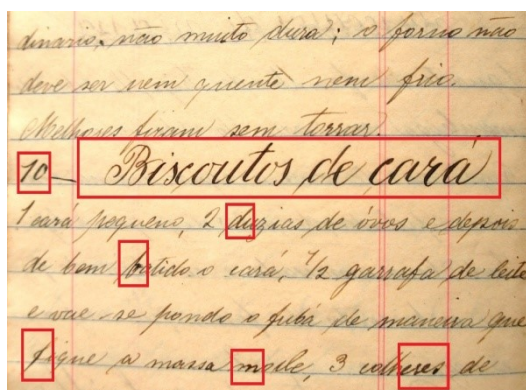 dinario, não muito dura; o forno não
deve ser nem quente nem frio.
Melhores ficam sem torrar.
10 — Biscoutos de cará
1 cará pequeno, 2 duzias de óvos e depois
de bem batido o cará, 1/2 garrafa de leite
e vae-se pondo o fubá de maneira que
fique a massa molle, 3 colheres de